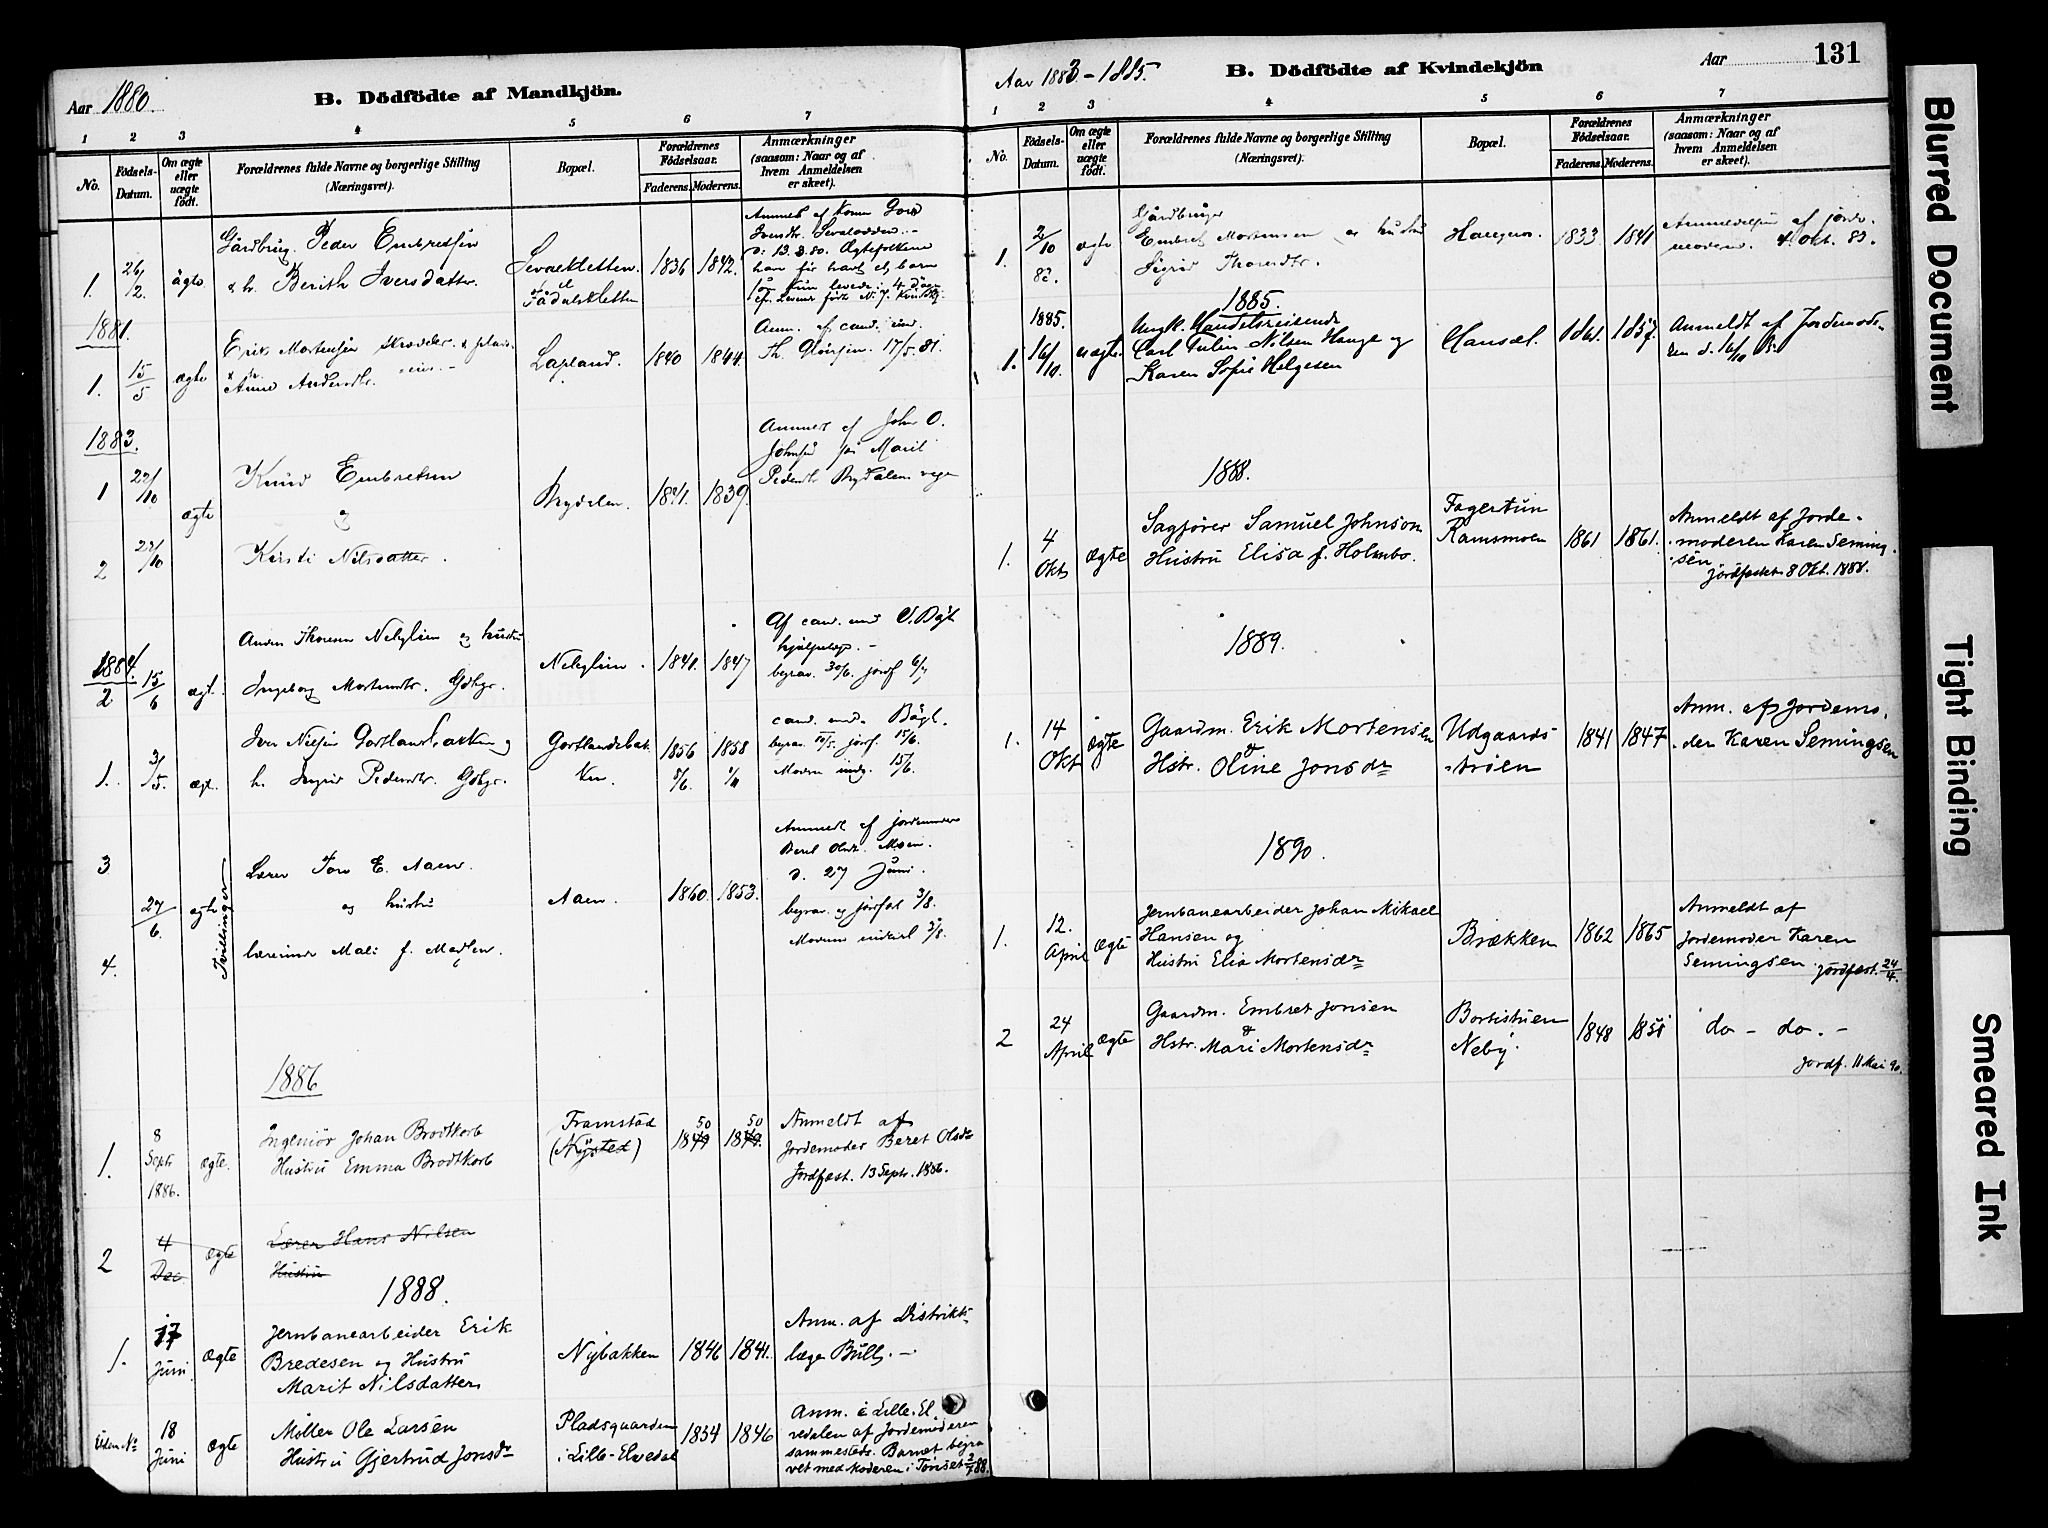 Aar 1880.
B. Dödfödte af Mandkjön.
1 2 3 4 5 6 7
No.
Födsels-
Datum.
Om ægte
eller
uægte
födt.
Forældrenes fulde Navne og borgerlige Stilling
(Næringsvei).
Bopæl.
Forældrenes
Födselsaar.
Faderens. Moderens.
Anmærkninger
(saasom: Naar og af
hvem Anmeldelsen
er skeet).
1. 26/2. ægte
Gårdbrug. Peder Embretsen
& h. Berith Iversdatter.
1836 1842.
1881.
1. 15/5 ægte
Erik Mortensen
Anne Andersdtr.
Lapland. 1840 1844.
Anm. af cand. med.
17/5. 81.
1883.
1 22/10 ægte
Knud Embretsen
og
2 22/10
Kirsti Nilsdatter.
Brydalen. 1841. 1839.
Anmeldt af John O.
Marit
Pedersdt. Brydalen
1884.
2 15/6 ægt.
og hustru
Ingeborg Mortensdtr. Gdbgr.
1847
Af cand. med
begrav. 30/6. jordf 6/7
1. 3/5. ægt.
Iver Nilsen
h. Ingrid Pedersdtr. Gdbgr.
1856 1858
cand. med.
begrav. 10/5. jordf. 15/6.
Moderen indg. 15/6.
3
27/6. ægte
Tvillinger
Lærer Tore E. Aaen.
og hustru
4.
Aaen. 1860. 1853.
Anmeldt af jordemoder
Beret Olsdt. Moen.
d. 27 Juni.
begrav. og jordfæst 3/8.
1886
1. 8 Septr 1886. ægte.
Ingeniör Johan Brodtkorb
Hustru Emma Brodtkorb
Framstad
(Nysted)
50 50
1849 1849.
Anmeldt af
Jordemoder Beret Olsdr
Jordfæst. 13 Septr. 1886.
2 4 Dec. ægte
Lærer Hans Nilsen
Hustru
1888.
1. 17 Juni ægte
Jernbanearbeider Erik
Bredesen og Hustru
Marit Nilsdatter
Nybakken 1846 1841.
Anm. af Distrikts
læge Bull. —
Uden No 18 Juni ægte
Møller Ole Larsen
Hustru Gjertrud Jonsdr
Pladsgaarden
i Lille-Elvedal
1854 1846
Anm. i Lille-El.
vedalen af Jordemoderen
sammesteds. Barnet begra
vet med Moderen i Tønset 3/7 88.
Aar 1883-1885.
B. Dödfödte af Kvindekjön
Aar
131
1 2 3 4 5 6 7
No.
Födsels-
Datum.
Om ægte
eller
uægte
födt.
Forældrenes fulde Navne og borgerlige Stilling
(Næringsvei).
Bopæl.
Forældrenes
Födselsaar.
Faderens. Moderens.
Anmærkninger
(saasom: Naar og af
hvem Anmeldelsen
er skeet).
1. 2/10 83. ægte
Gårdbruger
Embret Mortensen og hustru
Sigrid
1833 1841
Anmeldelsen af jorde-
moderen. 4 Okt. 83.
1885.
1885.
1. 16/10. uægte
Ungk. Handelsreisende
Carl Tulin Nilsen Hauge og
Karen Sofie Helgesen
1861. 1857.
Anmeldt af Jordemode-
ren d. 16/10 85.
1888.
1. 4 Okt ægte
Sagfører Samuel Johnson
Hustru Elisa f. Holmbo.
Fagertun
Ramsmoen
1861 1861.
Anmeldt af Jorde-
moderen Karen Seming-
sen
Jordfæstet 8 Okt. 1888.
1889.
1. 14 Okt ægte
Gaardm. Erik Mortensen
&
Hstr. Oline Jonsdr
Udgaards-
trøen
1841 1847
Anm. af Jordemo-
der Karen Semingsen
1890.
1. 12. April ægte
Jernbanearbeider Johan Mikael
Hansen og
Hustru Elia Mortensdr
Brækken 1862 1865
Anmeldt af
Jordemoder Karen
Semingsen. Jordfæst. 24/4.
2 24 April ægte
Gaardm. Embret Jonsen
&
Hstr. Mari Mortensdr
Bortistuen
Neby.
1848 1851
do - do. -
Jordf. 11 Mai 90.
Blurred Document
Tight Binding
Smeared Ink